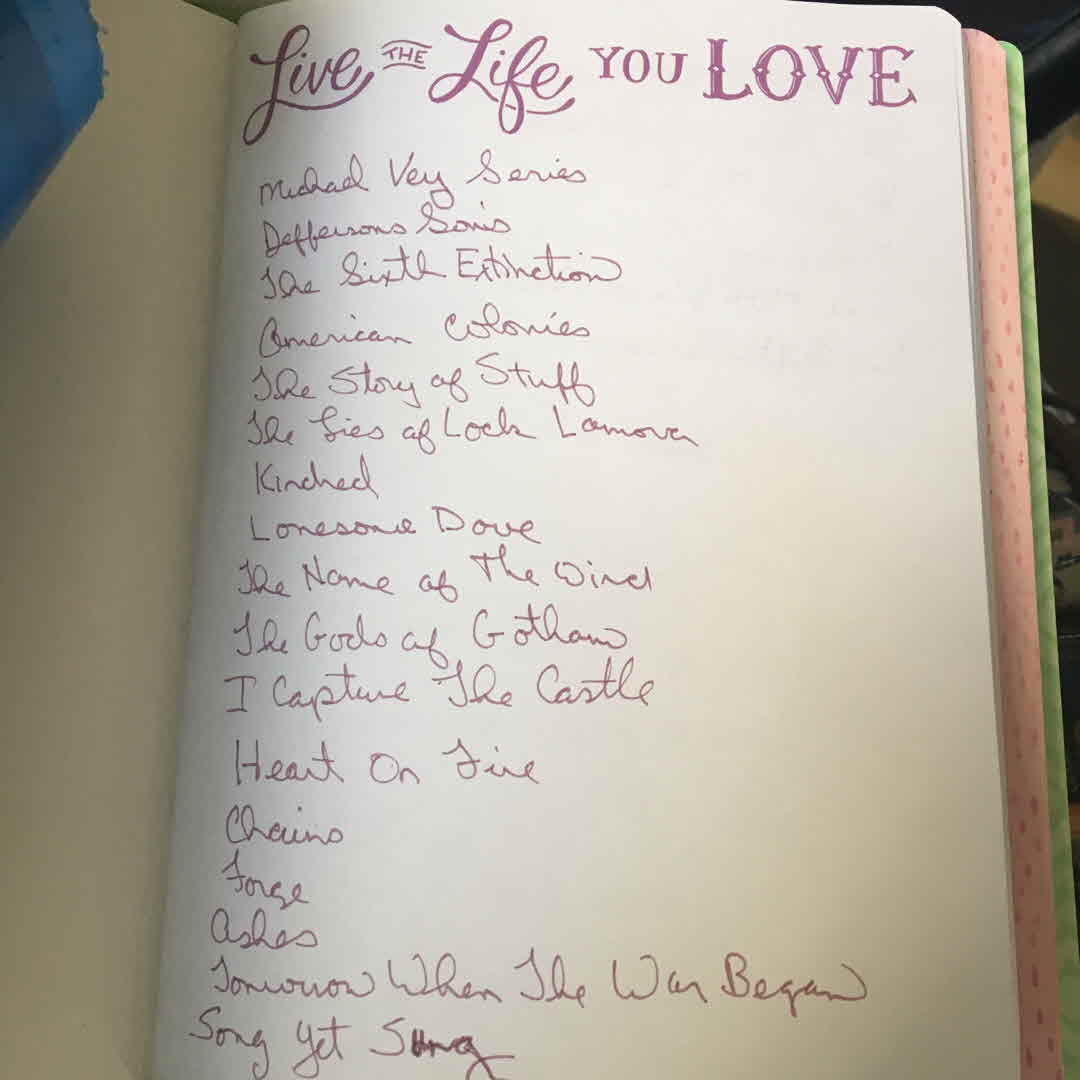 Live THE Life YOU LOVE
Michael Vey Series
Jeffersons Sons
The Sixth Extinction
American Colonies
The Story of Stuff
The Lies of Lock Lamora
Kindred
Lonesome Dove
The Name of The Wind
The Gods of Gotham
I Capture The Castle
Heart On Fire
Chains
Forge
Ashes
Tomorrow When The War Began
Song Yet Sung